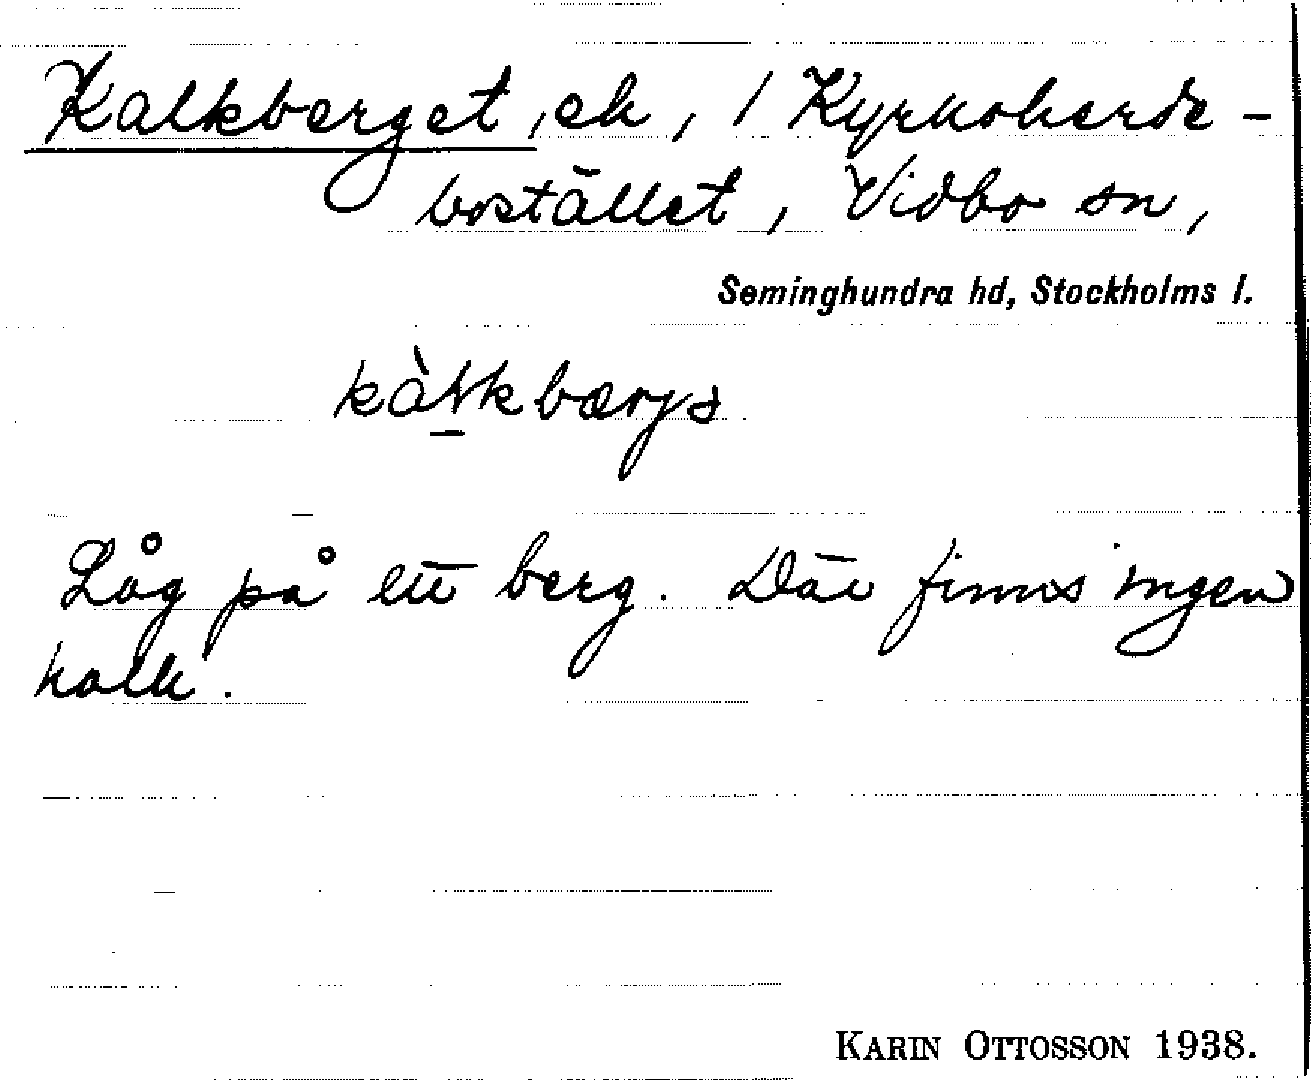 Kalkberget, ek, / Kyrkoherde-
bostället, Vidbo sn,
Seminghundra hd, Stockholms l.
kàlkbærjə
Låg på ett berg. Där finns ingen
kalk.
KARIN OTTOSSON 1938.